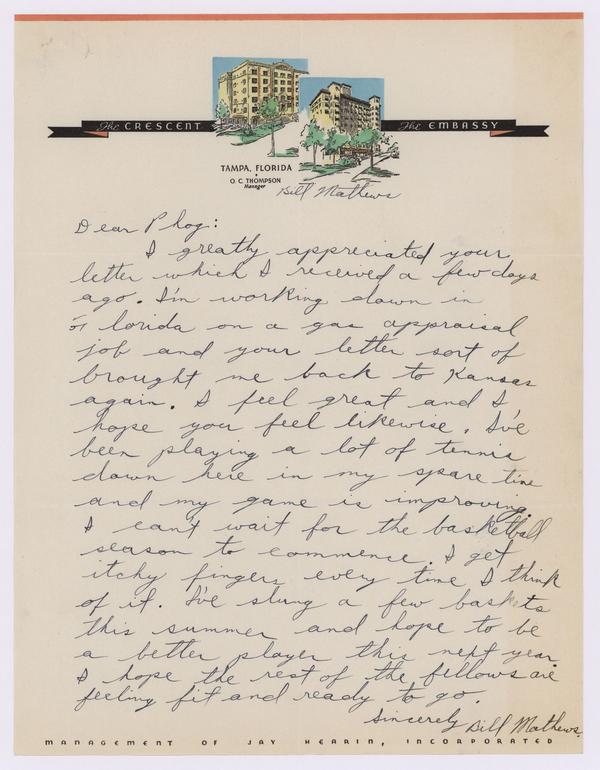 The CRESCENT The EMBASSY
TAMPA, FLORIDA
O. C. THOMPSON
Manager
Bill Mathews
Dear Phog:
I greatly appreciated your
letter which I received a few days
ago. I'm working down in
Florida on a gas appraisal
job and your letter sort of
brought me back to Kansas
again. I feel great and I
hope you feel likewise. I've
been playing a lot of tennis
down here in my spare time
and my game is improving.
I can't wait for the basketball
season to commence. I get
itchy fingers every time I think
of it. I've slung a few baskets
this summer and hope to be
a better player this next year.
I hope the rest of the fellows are
feeling fit and ready to go.
Sincerely Bill Mathews.
MANAGEMENT OF JAY HEARIN, INCORPORATED